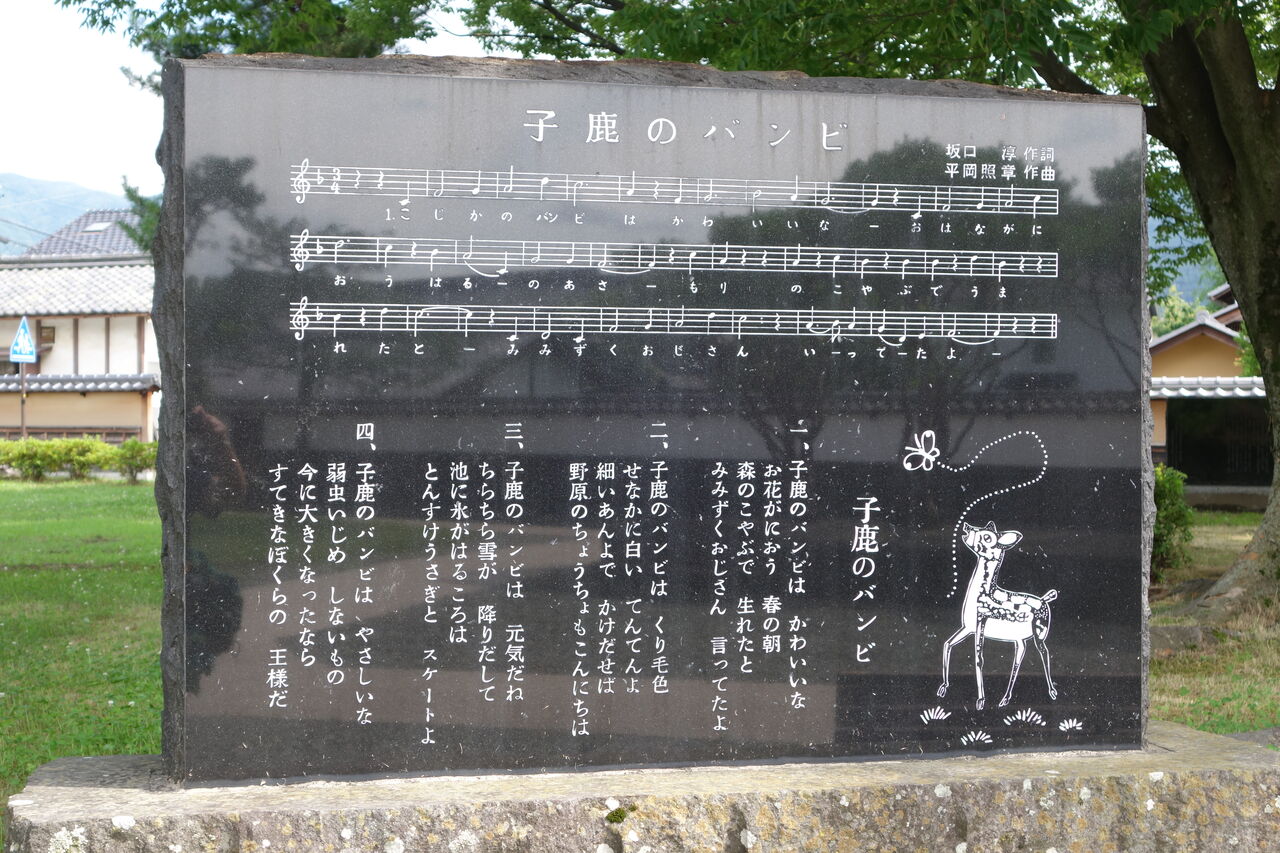 子鹿のバンビ
坂口 淳 作詞
平岡照章 作曲
3
4
1.こじかのバンビはかわいいなーおはながに
おうはるーのあさーもりのこやぶでうま
れたとーみみずくおじさんいーってーたよー
子鹿のバンビ
一、子鹿のバンビは かわいいな
お花がにおう 春の朝
森のこやぶで 生れたと
みみずくおじさん 言ってたよ
二、子鹿のバンビは くり毛色
せなかに白い てんてんよ
細いあんよで かけだせば
野原のちょうちょもこんにちは
三、子鹿のバンビは 元気だね
ちらちら雪が 降りだして
池に氷がはるころは
とんすけうさぎと スケートよ
四、子鹿のバンビは やさしいな
弱虫いじめ しないもの
今に大きくなったなら
すてきなぼくらの 王様だ